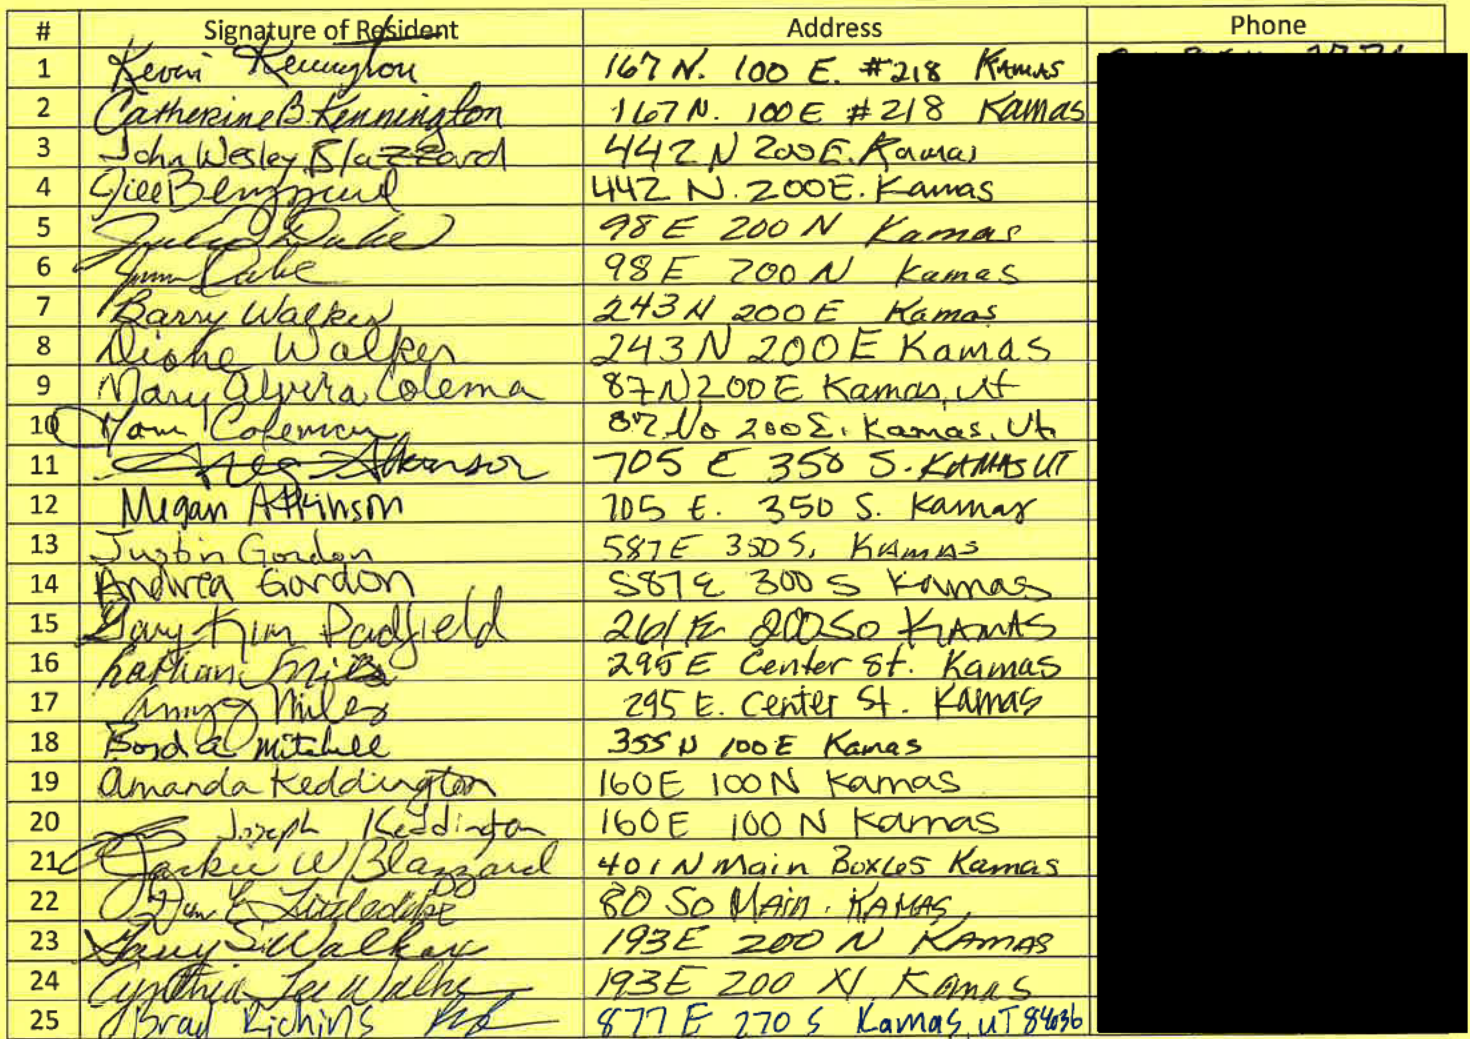 # Signature of Resident Address Phone
1 Kevin Kennington 167 N. 100 E. #218 Kamas
2 Catherine B. Kennington 167 N. 100 E #218 Kamas
3 John Wesley Blazzard 442 N 200 E. Kamas
4 442 N. 200 E. Kamas
5 Duke 98 E 200 N Kamas
6 Duke 98 E 200 N Kamas
7 Barry Walker 243 N 200 E Kamas
8 Diane Walker 243 N 200 E Kamas
9 Mary Alvira Colema 87 N 200 E Kamas, Ut
10 Coleman 87 No 200 E. Kamas, Ut.
11 Atkinson 705 E 350 S. KAMAS UT
12 Megan Atkinson 705 E. 350 S. Kamas
13 Justin Gordon 587 E 350 S. KAMAS
14 Andrea Gordon 587 E 300 S Kamas
15 Gary Kim Padfield 261 E 200 So KAMAS
16 295 E Center St. Kamas
17 Amy J Miles 295 E. Center St. Kamas
18 Boyd A Mitchell 355 N 100 E Kamas
19 Amanda Keddington 160 E 100 N Kamas
20 Joseph Keddington 160 E 100 N Kamas
21 Jackie W Blazzard 401 N Main Kamas
22 80 So Main. KAMAS,
23 Walker 193 E 200 N KAMAS
24 Cynthia Lee Walker 193 E 200 N Kamas
25 Brad Richins 877 E 270 S Kamas, UT 84036